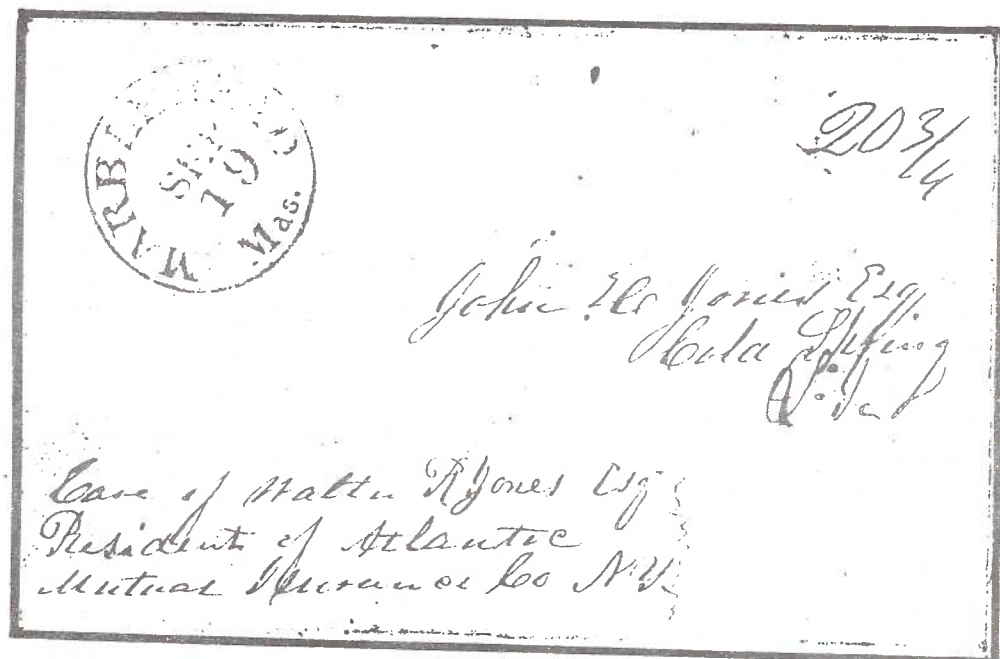 MARBLEHEAD
SEP
19
Mas.
20 3/4
John H Jones Esq
Cold Spring
Care of Walter R Jones Esq
President of Atlantic
Mutual Insurance Co N.Y.